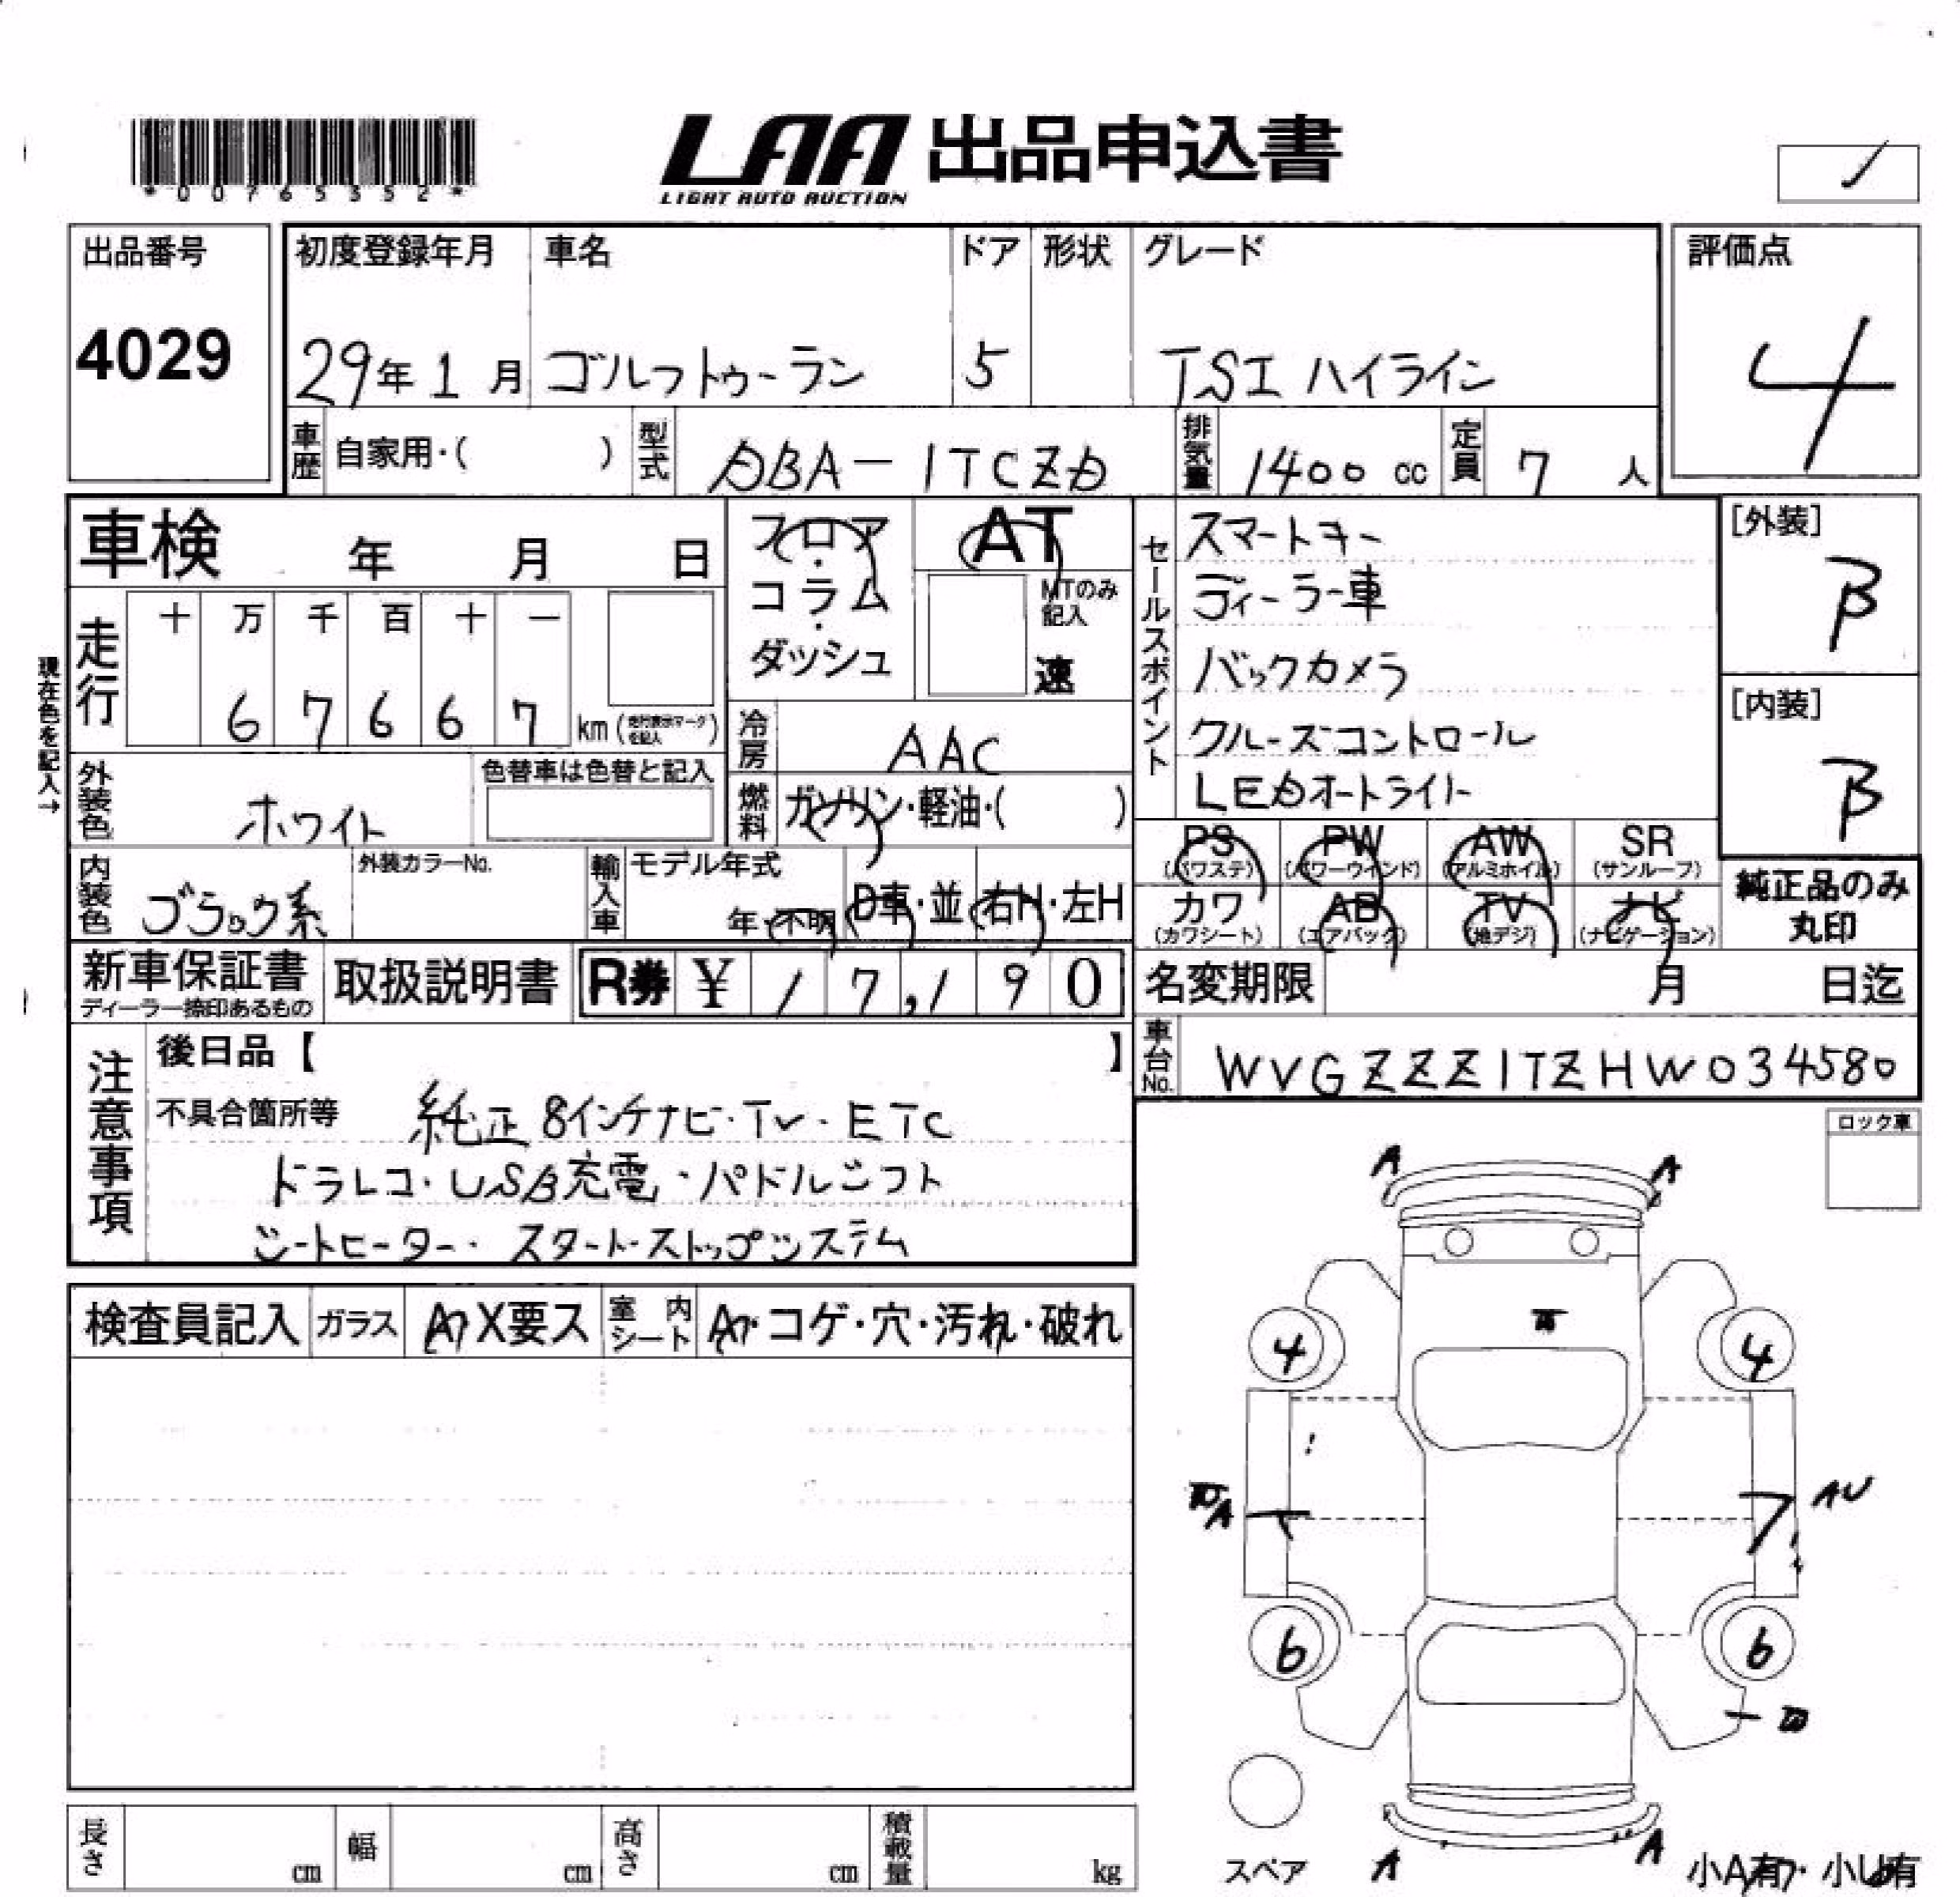 *00765352*
LAA 出品申込書
LIGHT AUTO AUCTION
出品番号 初度登録年月 車名 ドア 形状 グレード 評価点
4029 29年 1 月 ゴルフトゥーラン 5 TSI ハイライン 4
車歴 自家用・( ) 型式 DBA-1TCZD 排気量 1400 cc 定員 7 人
車検 年 月 日 フロア・コラム・ダッシュ AT
MTのみ記入 速
セールスポイント
スマートキー
ディーラー車
バックカメラ
クルーズコントロール
LEDオートライト
[外装] B
[内装] B
現在色を記入→
走行 十 万 千 百 十 一
6 7 6 6 7 km (走行表示マークを記入)
冷房 AAC
外装色 ホワイト 色替車は色替と記入
燃料 ガソリン・軽油・( )
PS (パワステ) PW (パワーウインド) AW (アルミホイル) SR (サンルーフ)
カワ (カワシート) AB (エアバック) TV (地デジ) ナビ (ナビゲーション)
純正品のみ丸印
内装色 ブラック系 外装カラーNo. 輸入車 モデル年式 年・不明 D車・並 右H・左H
新車保証書 ディーラー捺印あるもの 取扱説明書 R券 ¥ 17,190 名変期限 月 日迄
車台No. WVGZZZ1TZHW034580
注意事項
後日品【 】
不具合箇所等 純正8インチナビ・TV・ETC
ドラレコ・USB充電・パドルシフト
シートヒーター・スタートストップシステム
ロック車
検査員記入 ガラス A X要ス 室内シート A・コゲ・穴・汚れ・破れ
A A
4 4
A AU
6 6
A A
スペア
小A有・小U有
長さ cm 幅 cm 高さ cm 積載量 kg